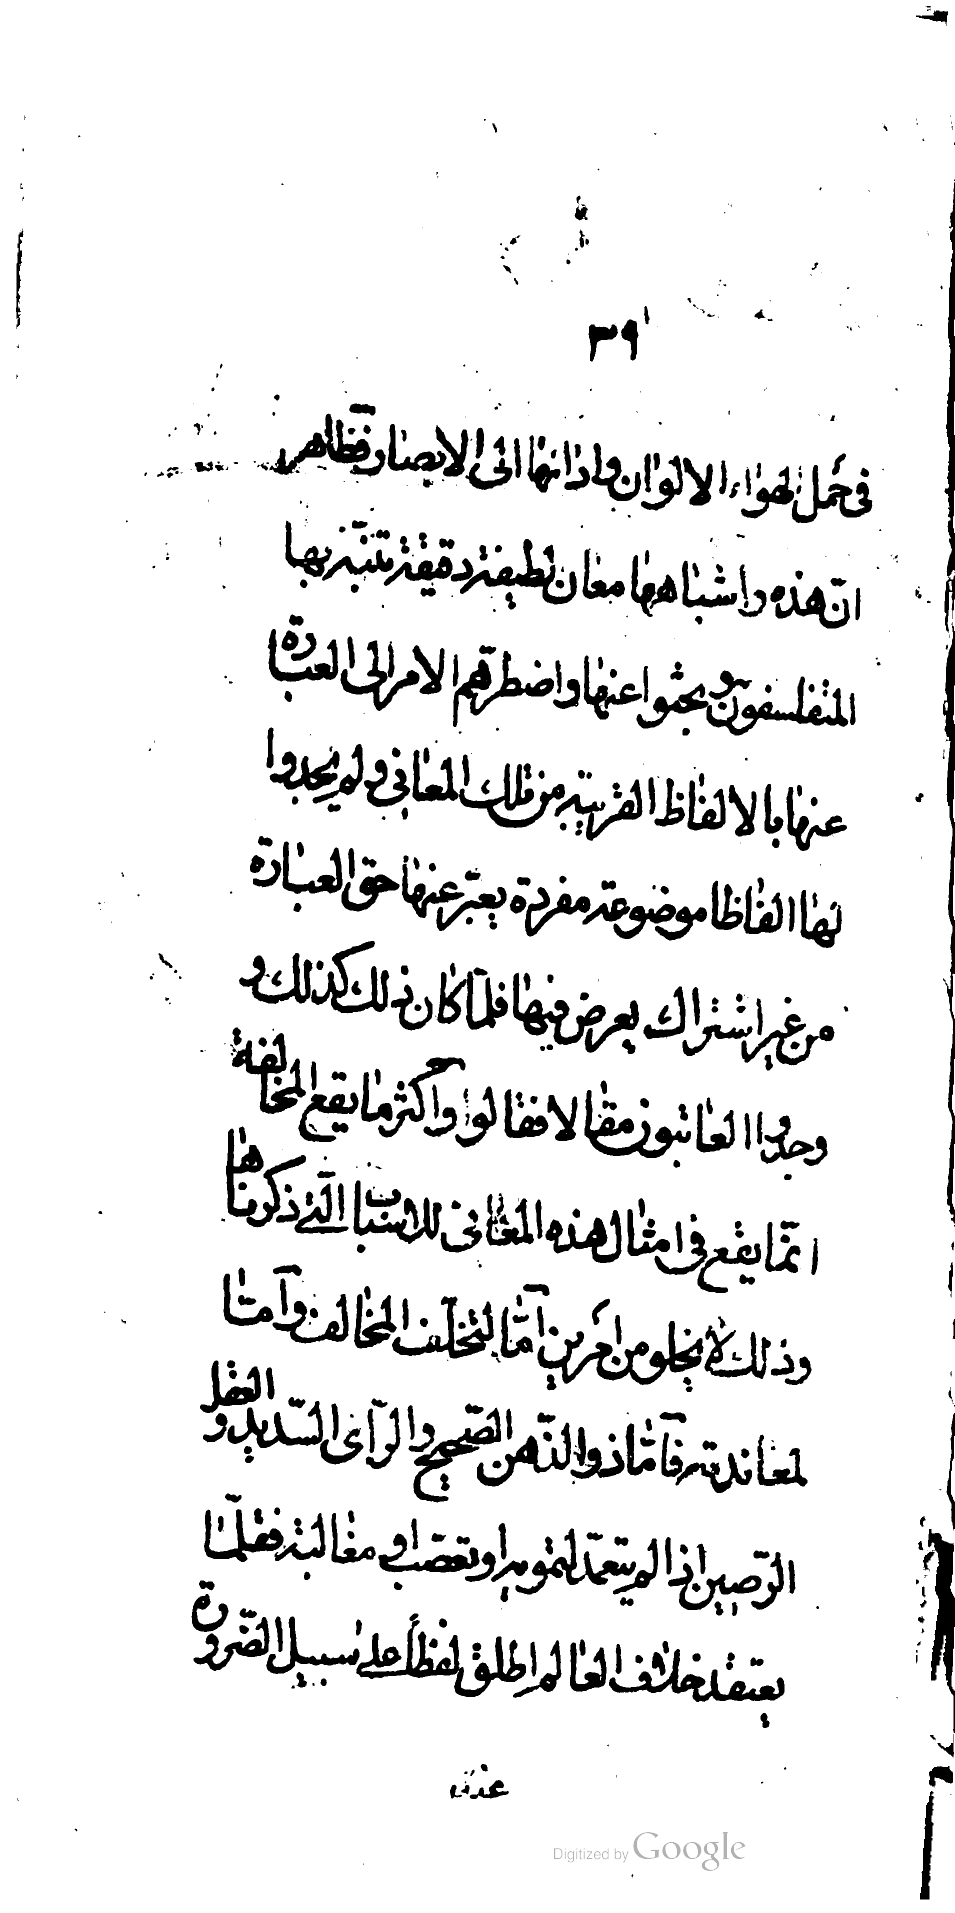 ٣٩
في حمل الهواء الالوان واداتها الى الابصار فظاهر
انّ هذه واشباهها معان لطيفة دقيقة تنبّه بها
المتفلسفون وبحثوا عنها واضطرهم الامر الى العبارة
عنها بالالفاظ القريبة من تلك المعاني ولم يجدوا
لها الفاظا موضوعة مفردة يعبّر عنها حق العبارة
من غير اشتراك يعرض فيها فلمّا كان ذلك كذلك و
وجدوا العائبون مقالا فقالوا واكثر ما يقع المخالفة
انّما يقع في امثال هذه المعاني للاسباب الّتي ذكرناها
وذلك لا يخلو من امرين امّا لتخلّف المخالف وامّا
لمعاندته فامّا ذو الذّهن الصّحيح والرّاى السّديد والعقل
الرّصين اذا لم يتعمّد لتمويه او تعصّب او مغالبة فقلّما
يعتقد خلاف العالم اطلق لفظاً على سبيل الضّرورة
Digitized by Google